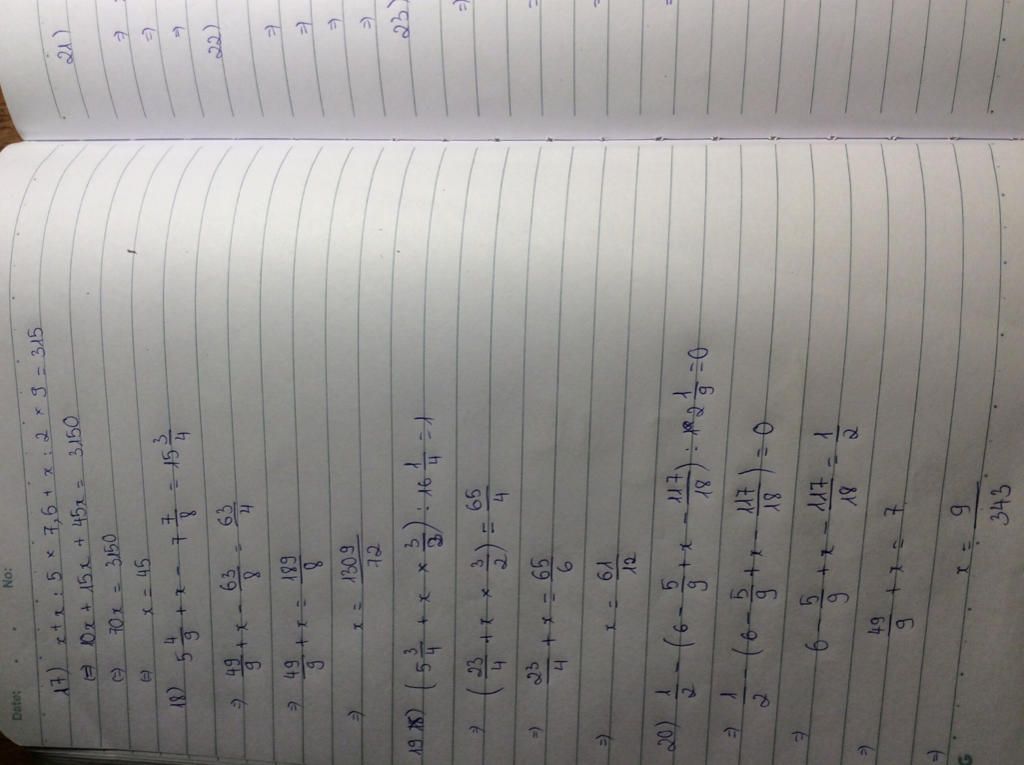 Date: No:
17) x + x : 5 × 7,6 + x : 2 × 9 = 315
⇔ 10x + 15x + 45x = 3150
⇔ 70x = 3150
⇔ x = 45
18) 5 4/9 + x - 7 7/8 = 15 3/4
⇒ 49/9 + x - 63/8 = 63/4
⇒ 49/9 + x = 189/8
⇒ x = 1309/72
19) (5 3/4 + x × 3/2) : 16 1/4 = 1
⇒ (23/4 + x × 3/2) = 65/4
⇒ 23/4 + x = 65/6
⇒ x = 61/12
20) 1/2 - (6 - 5/9 + x - 117/18) : 2 1/9 = 0
⇒ 1/2 - (6 - 5/9 + x - 117/18) = 0
⇒ 6 - 5/9 + x - 117/18 = 1/2
⇒ 49/9 + x = 7
⇒ x = 9/343
21)
⇒
⇒
⇒
22)
⇒
⇒
⇒
⇒
23)
⇒